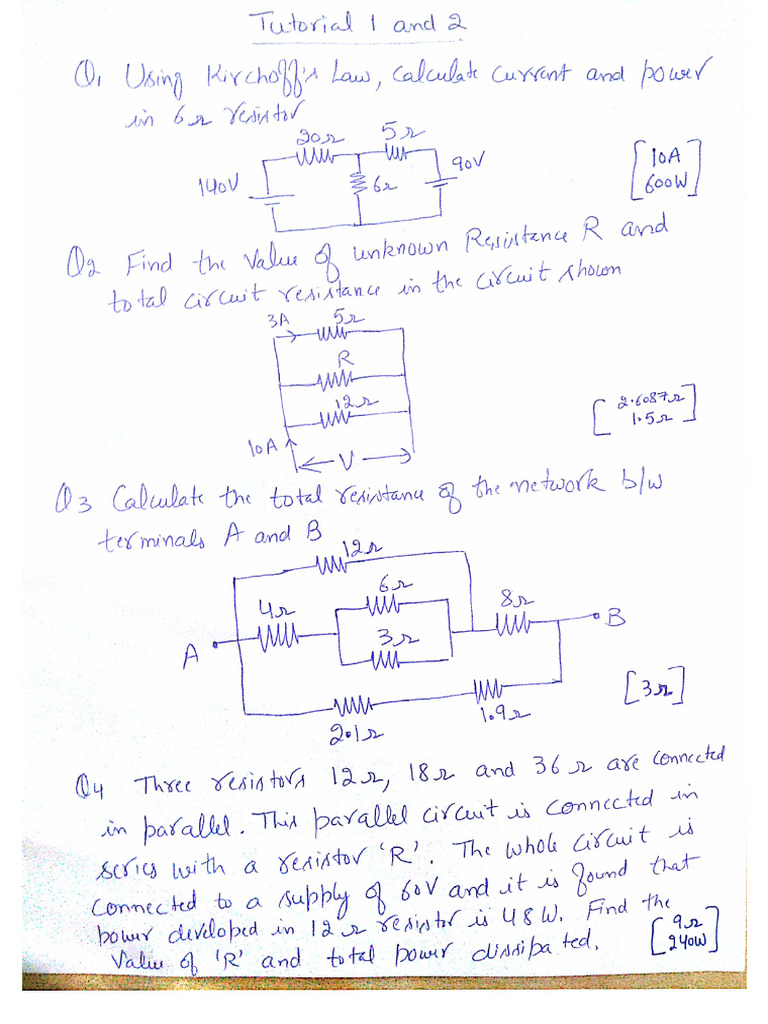 Tutorial 1 and 2
Q1 Using Kirchoff's Law, Calculate Current and power
in 6Ω resistor
20Ω 5Ω
140V 6Ω 90V
[10A
600W]
Q2 Find the Value of unknown Resistance R and
total circuit resistance in the circuit shown
3A 5Ω
R
12Ω
[2.6087Ω
1.5Ω]
10A
V
Q3 Calculate the total resistance of the network b/w
terminals A and B
12Ω
6Ω
4Ω 8Ω
3Ω B
A
[3Ω]
2.1Ω 1.9Ω
Q4 Three resistors 12Ω, 18Ω and 36Ω are connected
in parallel. This parallel circuit is connected in
series with a resistor 'R'. The whole circuit is
connected to a supply of 60V and it is found that
power developed in 12Ω resistor is 48W. Find the
Value of 'R' and total power dissipated.
[9Ω
240W]